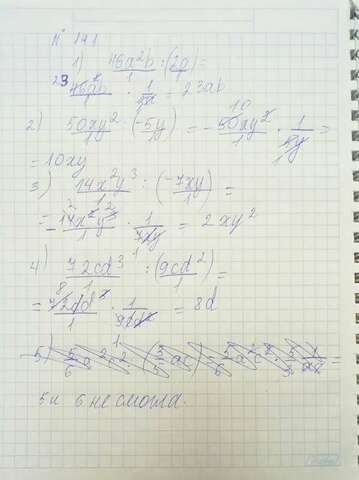 № 141
1) 46a²b/1 : (2a/1) =
23 46ab/1 · 1/2a = 23ab
2) 50xy²/1 · (-5y/1) = - 10 50xy²/1 · 1/5y =
= 10xy
3) 14x²y³/1 : (-7xy/1) =
= - 2 14x²y³ 2/1 · 1/7xy = 2xy²
4) 72cd³/1 : (9cd²/1) =
= 8 72cd³/1 · 1/9cd² = 8d
5 и 6 не смогла.